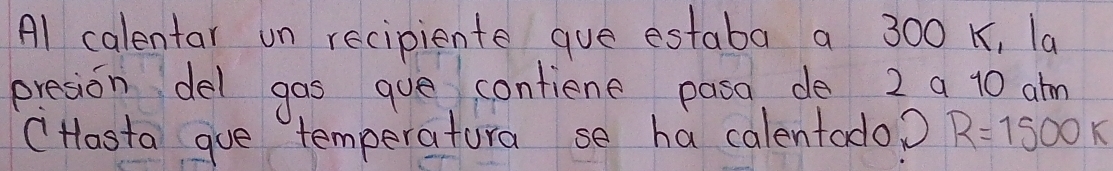 Al calentar un recipiente que estaba a 300 K, la
presión del gas que contiene pasa de 2 a 10 atm
¿Hasta que temperatura se ha calentado? R=1500 K